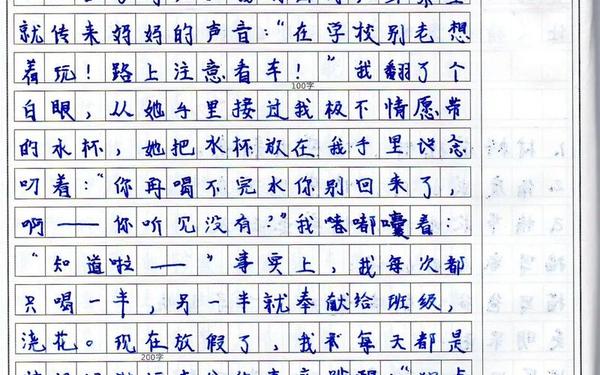 就传来妈妈的声音：“在学校别老想
着玩！路上注意看车！”我翻了个
100字
白眼，从她手里接过我极不情愿带
的水杯，她把水杯放在我手里说念
叨着：“你再喝不完水你别回来了，
啊——你听见没有？”我嘟囔着：
“知道啦——”事实上，我每次都
只喝一半，另一半就奉献给班级，
浇花。现在放假了，我 每天都是
200字